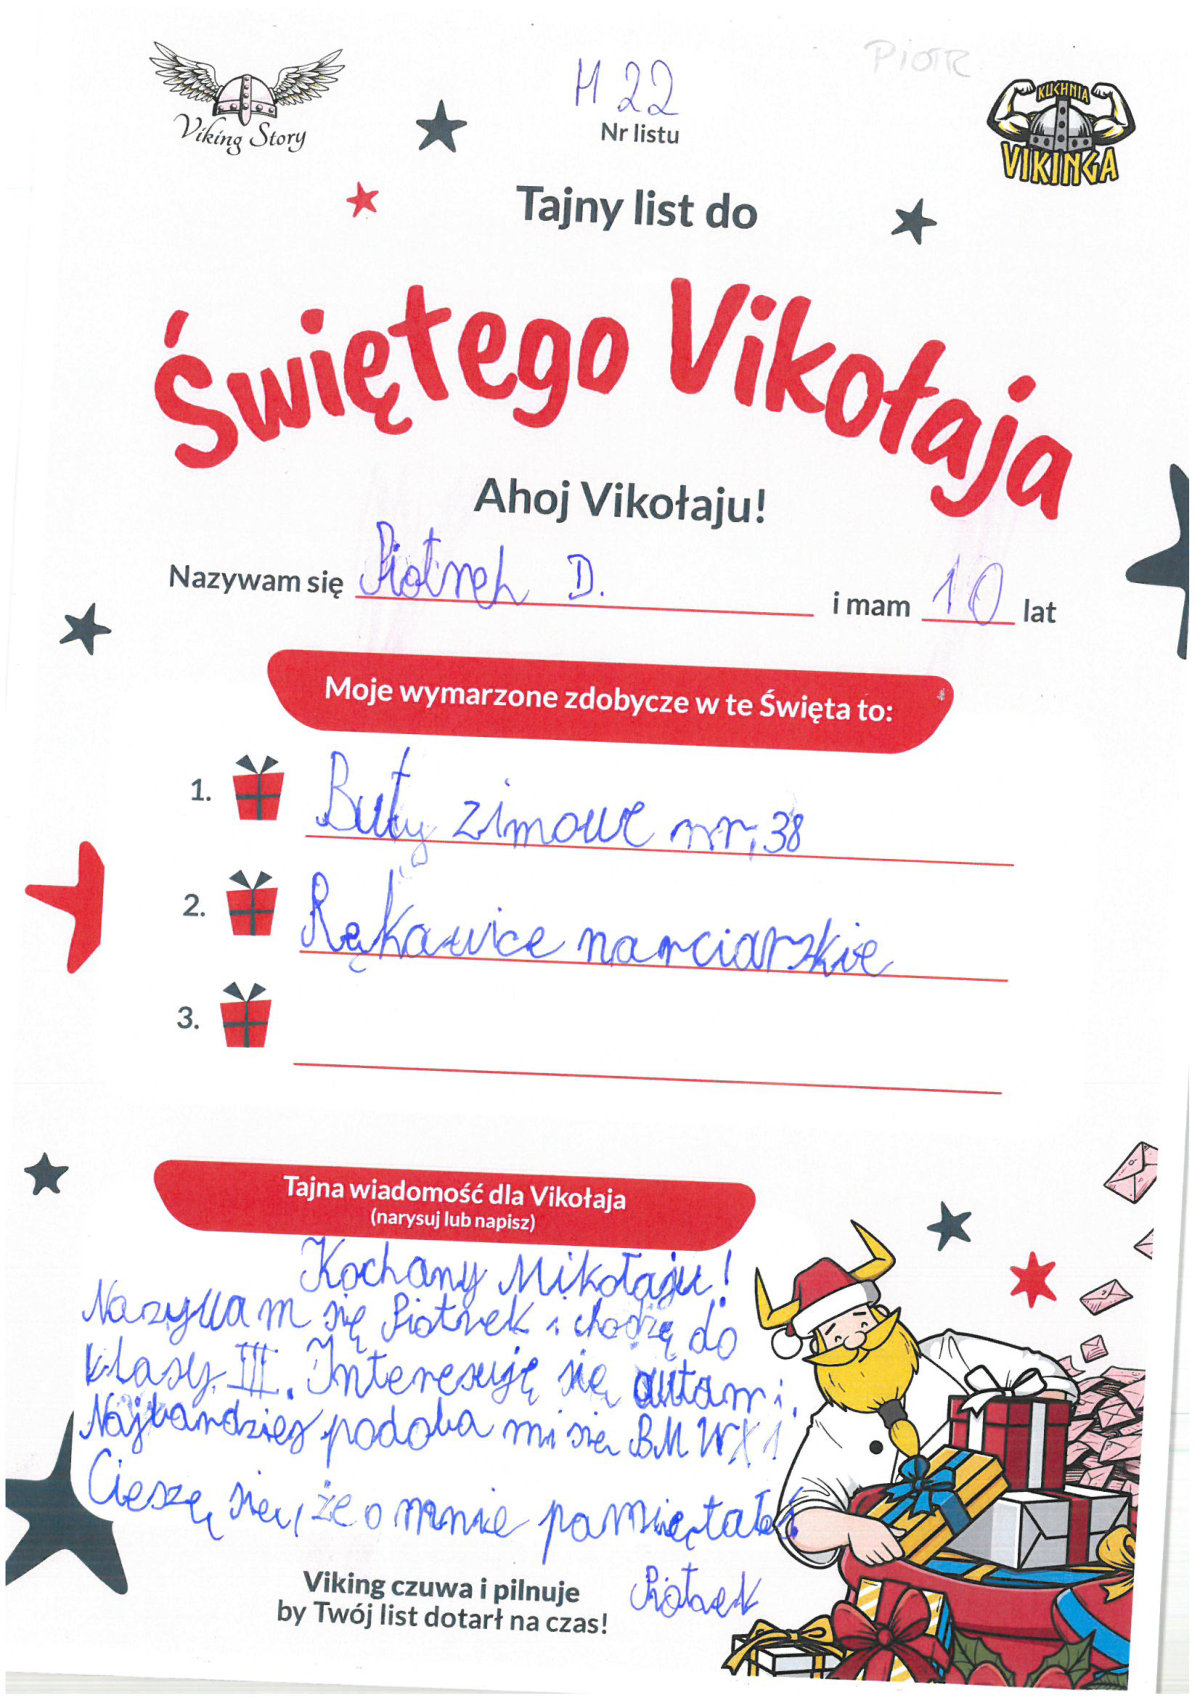 Viking Story
H 22
Nr listu
PIOTR
KUCHNIA
VIKINGA
Tajny list do
Świętego Vikołaja
Ahoj Vikołaju!
Nazywam się Piotrek D. i mam 10 lat
Moje wymarzone zdobycze w te Święta to:
1. Buty zimowe nr, 38
2. Rękawice narciarskie
3.
Tajna wiadomość dla Vikołaja
(narysuj lub napisz)
Kochany Mikołaju!
Nazywam się Piotrek i chodzę do
klasy III. Interesuję się autami.
Najbardziej podoba mi się BMW X1
Cieszę się, że o mnie pamiętałeś.
Piotrek
Viking czuwa i pilnuje
by Twój list dotarł na czas!